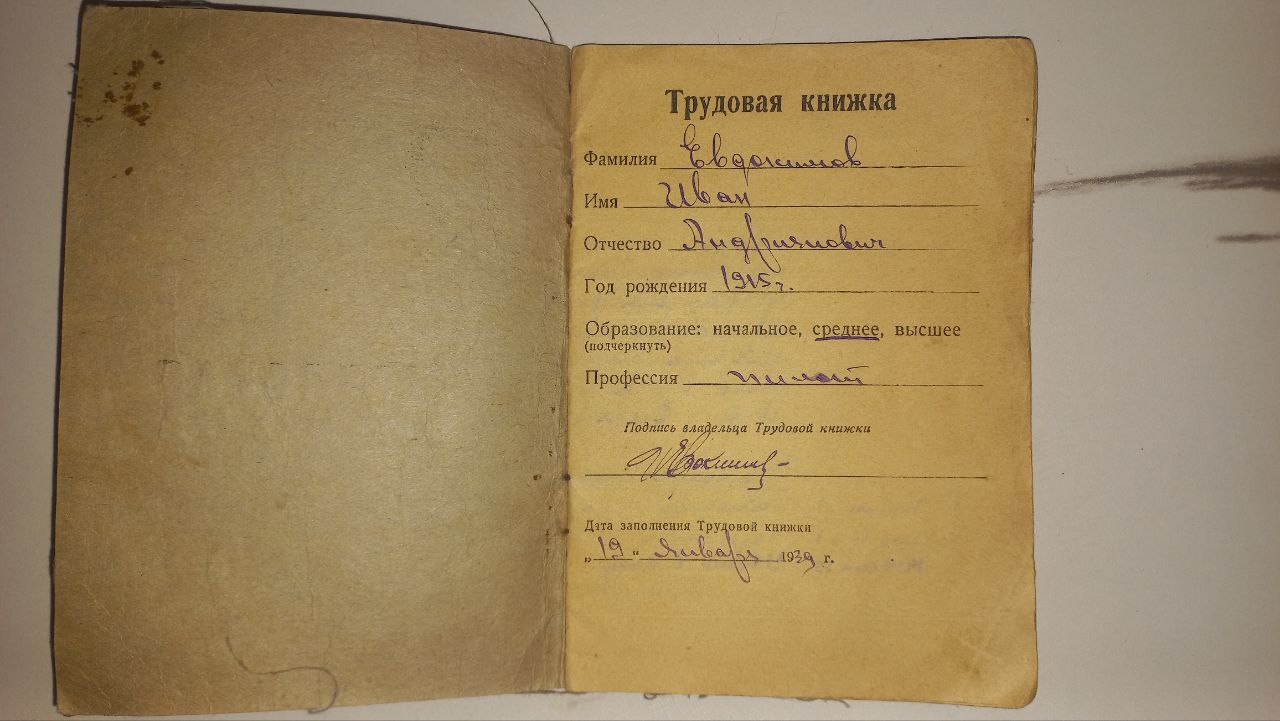 Трудовая книжка
Фамилия Евдокимов
Имя Иван
Отчество Андриянович
Год рождения 1915 г.
Образование: начальное, среднее, высшее
(подчеркнуть)
Профессия пилот
Подпись владельца Трудовой книжки
Евдокимов
Дата заполнения Трудовой книжки
„19“ января 1939 г.